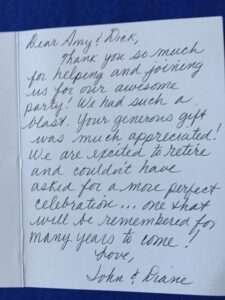 Dear Amy & Dick,
Thank you so much
for helping and joining
us for our awesome
party! We had such a
blast. Your generous gift
was much appreciated!
We are excited to retire
and couldn't have
asked for a more perfect
celebration... one that
will be remembered for
many years to come!
Love,
John & Diane